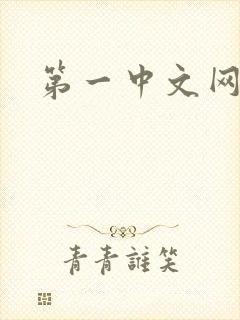 第一中文网
青青誰笑